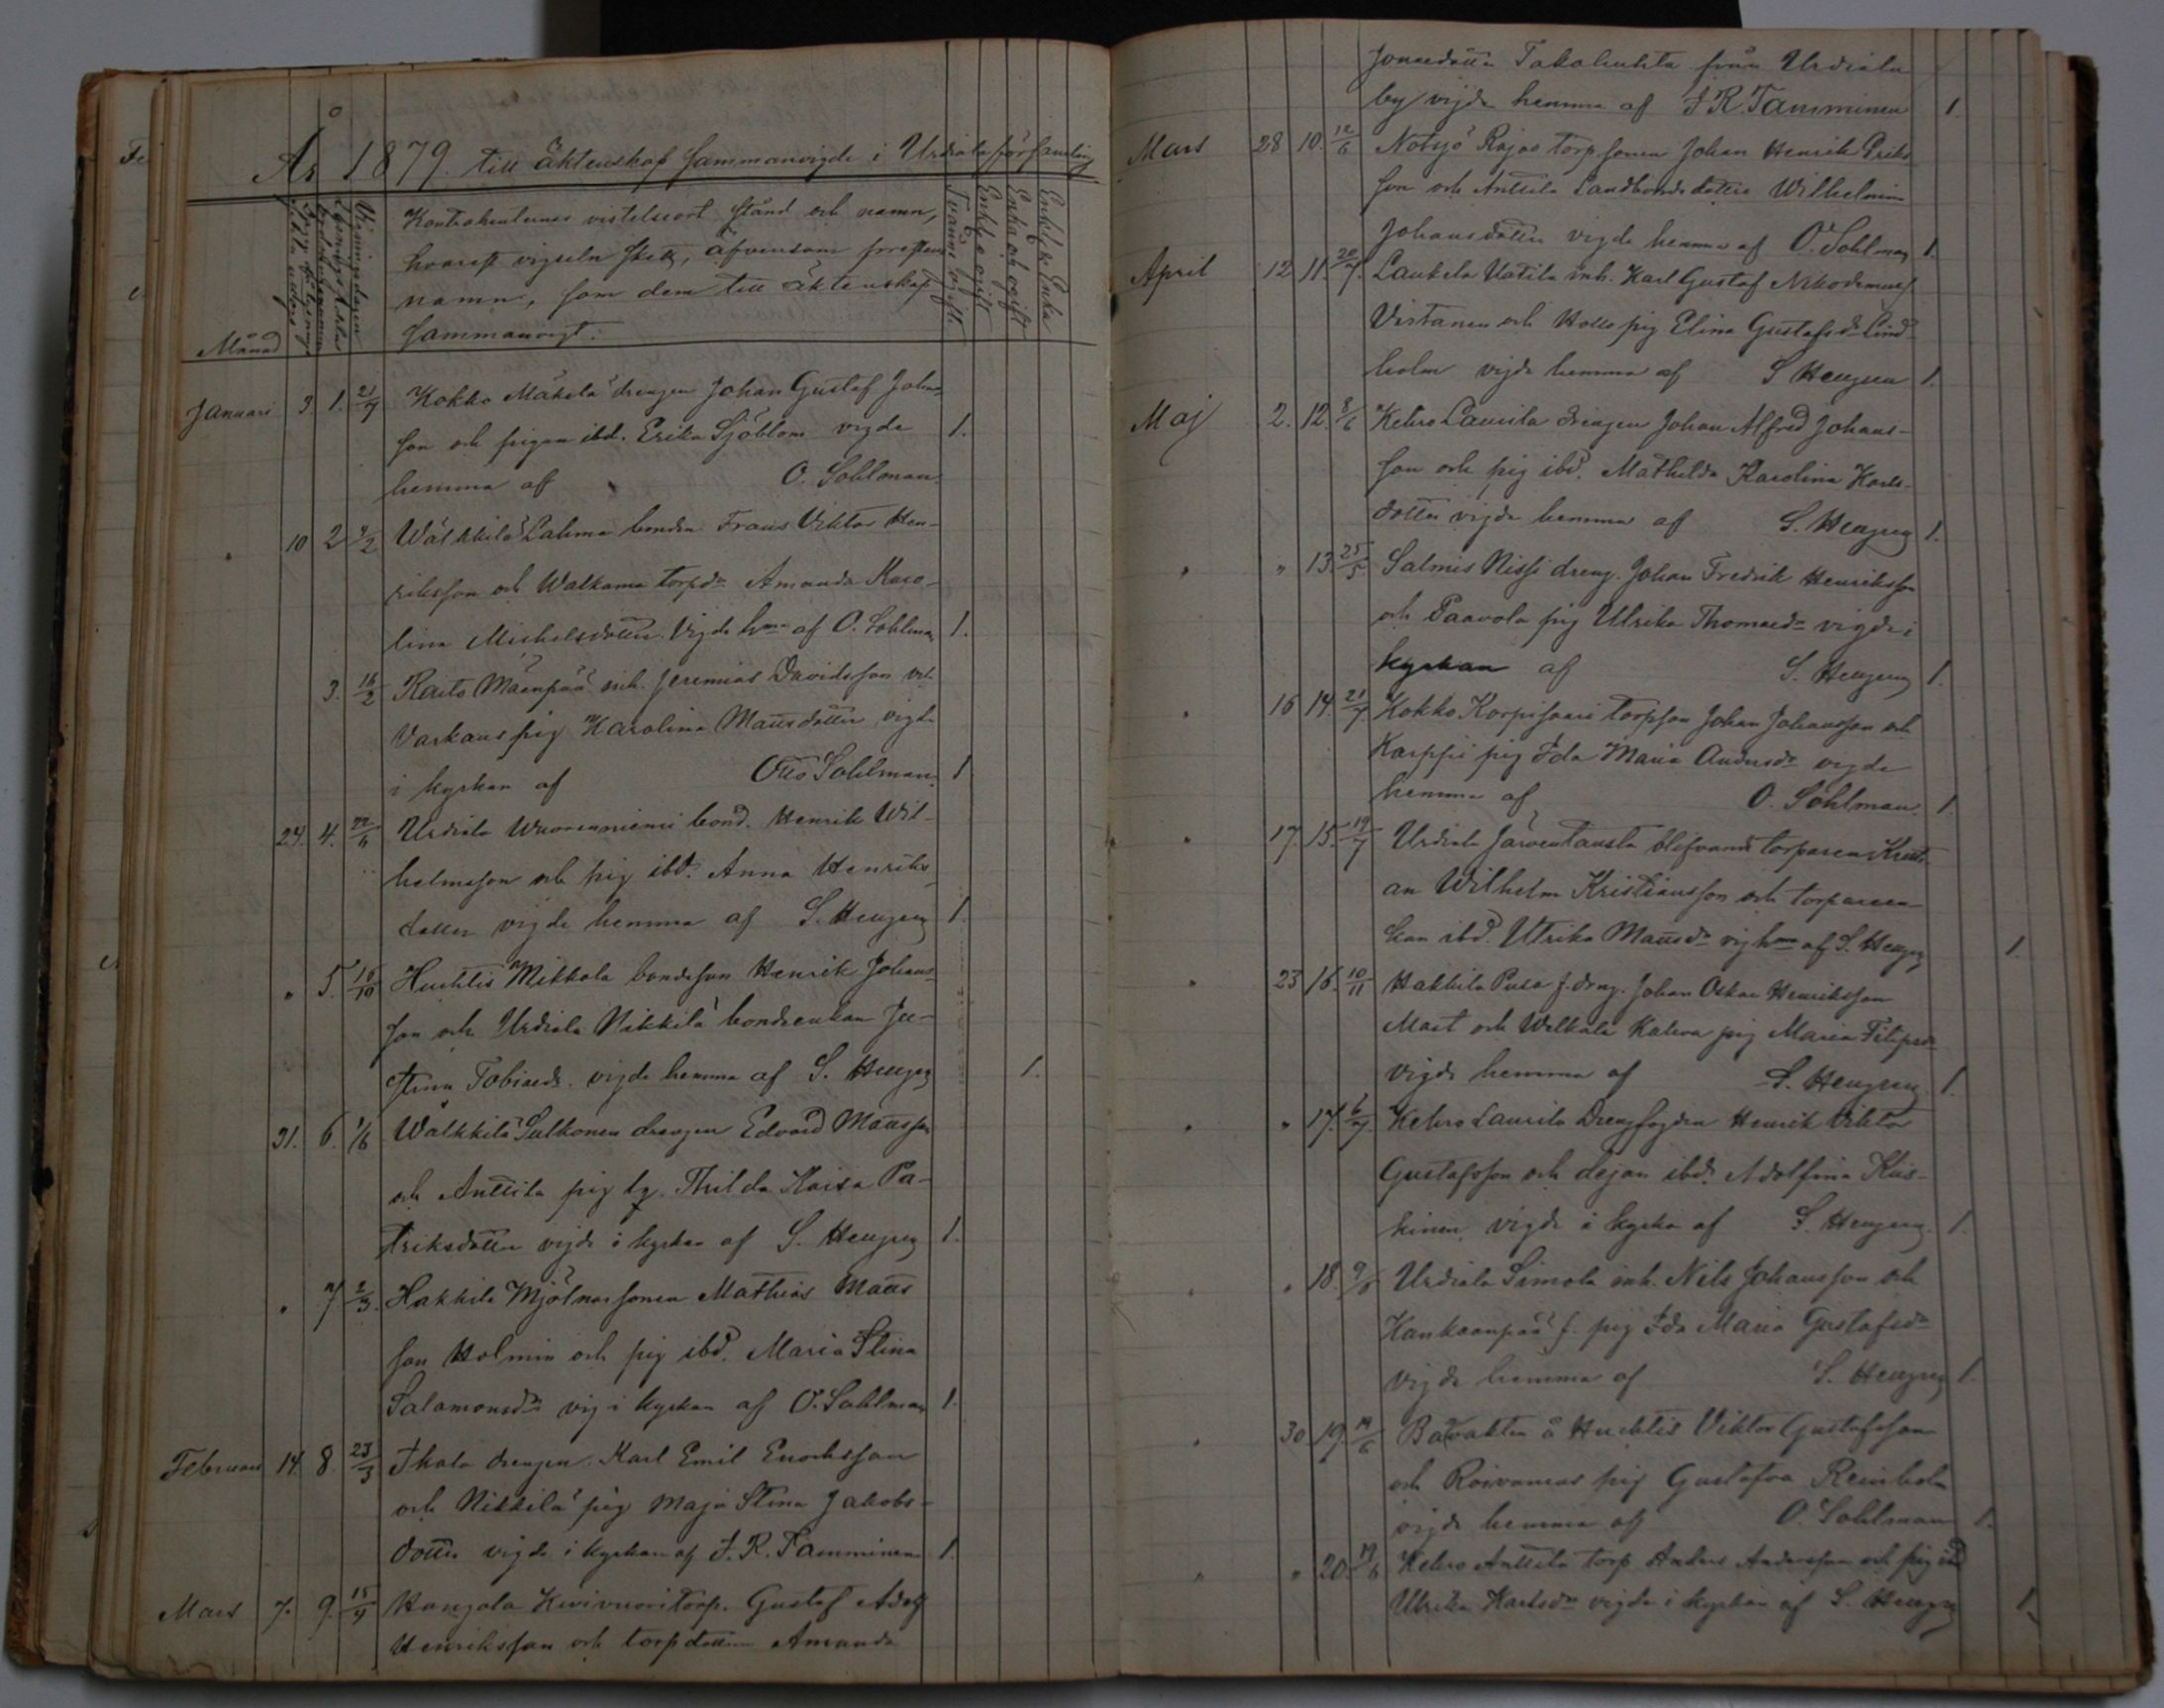 År 1879. till äktenskap sammanvigde i Urdiala församling
Månad
Vigningsdagen
Kontrahenternes vistelseort stånd och namn,
hvarest vigseln skett, äfvensom prestens
namn, som dem till äktenskap
sammanvigt.
Tvänne ogifte
Enkling o. ogift
Enka och ogift
Enkling o. Enka
Januari 3. 1. 21/7 Kokko Mäkelä drengen Johan Gustaf Johans
son och pigan ibd. Erika Sjöblom vigde 1.
hemma af O. Sohlman.
" 10 2 9/2 Wälkkilä Lahma bonden Frans Viktor Hen-
riksson och Walkama torpdr Amanda Karo-
lina Michelsdotter. Vigde hma af O. Sohlman 1.
3. 16/2 Rauto Mäenpää inh. Jeremias Davidsson och
Varkaus pig Karolina Mattsdotter vigde
i kyrkan af Otto Sohlman. 1
24. 4. 22/6 Urdiala Wuorenniemi bond. Henrik Wil-
helmsson och pig ibd. Anna Henriks
dotter vigde hemma af S. Hengren 1.
" 5. 16/10 Huhtis Mikkola bondeson Henrik Johans
son och Urdiala Nikkilä bondeenkan Ju-
stina Tobiasdr. vigde hemma af S. Hengren 1.
31. 6. 1/6 Wälkkilä Sulkonen drengen Edvard Mattsson
och Anttila pig Thilda Kaisa Pa-
triksdotter vigde i kyrkan af S. Hengren 1.
" 7 2/3. Hakkila Mjölnarsonen Mathias Matts
son Holmin och pig ibd. Maria Stina
Salamonsdr vig i kyrkan af O. Sohlman 1.
Februari 14. 8. 23/3 Ihala drengen Karl Emil Enochsson
och Nikkilä pig Maja Stina Jakobs-
dotter vigde i kyrkan af J. R. Tamminen 1.
Mars 7. 9. 15/4 Hangala Kivivuori torp. Gustaf Adolf
Henriksson och torpdottren Amanda
Jonasdotter Takahuhta från Urdiala
by vigde hemma af J. R. Tamminen 1.
Mars 28 10. 12/6 Notsjö Rajas torpsonen Johan Henrik Eriks
son och Anttila Landbondedotter Wilhelmina
Johansdotter vigde hemma af O. Sohlman 1.
April 12 11. 20/7. Laukela Uotila inh. Karl Gustaf Nikodemuss.
Virtanen och Hollo pig Elina Gustafsdr Lind
holm vigde hemma af S Hengren 1.
Maj 2. 12. 8/6 Kehro Laurila Drengen Johan Alfred Johans-
son och pig ibd. Mathilda Karolina Karls-
dotter vigde hemma af S. Hengren 1.
" " 13. 25/5. Salmis Nissi dreng. Johan Fredrik Henriksson
och Paavola pig Ulrika Thomasdr vigde i
kyrkan af S. Hengren 1.
" 16 14. 21/7 Kokko Korpisaari torpson Johan Johansson och
Karppi pig Ida Maria Andersdr vigde
hemma af O. Sohlman. 1.
" 17. 15. 19/7 Urdiala Järventausta blifvande torparen Kristi
an Wilhelm Kristiansson och torpareen-
kan ibd. Ulrika Mattsdr vig hma af S. Hengren 1.
" 23 16. 10/11 Hakkila Pusa f. dreng. Johan Oskar Henriksson
Mart och Walkala Kaleva pig Maria Filipsdr
vigde hemma af S. Hengren 1.
" " 17. 6/7. Kehro Laurila Drengfogden Henrik Viktor
Gustafsson och dejan ibd. Adolfina Kus-
kinen vigde i kyrka af S. Hengren. 1.
" " 18. 9/6 Urdiala Simola inh. Nils Johansson och
Kankaanpää f. pig Ida Maria Gustafsdr
vigde hemma af S. Hengren 1.
" 30 19. 19/6 Banvakten å Huhtis Viktor Gustafsson
och Roivamas pig Gustafva Reinholm
vigde hemma af O. Sohlman 1.
" " 20. 19/6 Kehro Anttila torp Anders Andersson och pig ibd
Ulrika Karlsdr vigde i kyrkan af S. Hengren 1.